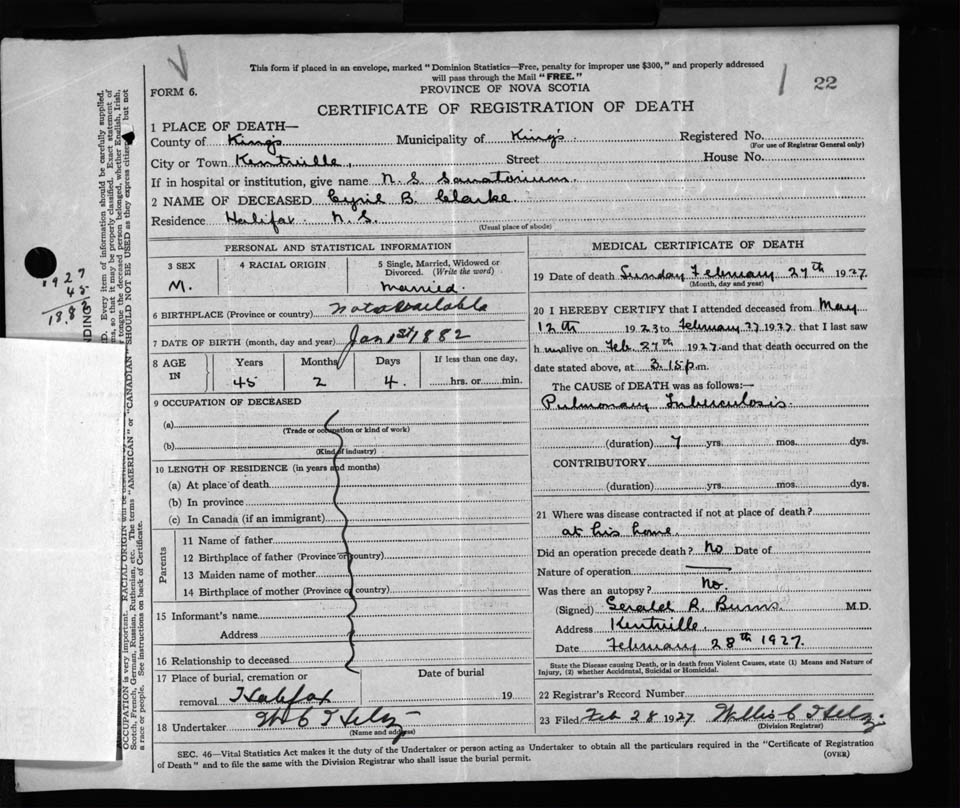 This form if placed in an envelope, marked "Dominion Statistics—Free, penalty for improper use $300," and properly addressed
will pass through the Mail "FREE."
22
FORM 6.
PROVINCE OF NOVA SCOTIA
CERTIFICATE OF REGISTRATION OF DEATH
1 PLACE OF DEATH—
County of King's Municipality of King's Registered No.
(For use of Registrar General only)
City or Town Kentville, Street House No.
If in hospital or institution, give name N. S. Sanatorium
2 NAME OF DECEASED Cyril B. Clarke.
Residence Halifax N. S.
(Usual place of abode)
PERSONAL AND STATISTICAL INFORMATION
3 SEX 4 RACIAL ORIGIN 5 Single, Married, Widowed or
Divorced. (Write the word)
M. married.
6 BIRTHPLACE (Province or country) not available
7 DATE OF BIRTH (month, day and year) Jan 1st 1882
8 AGE IN Years Months Days If less than one day,
45 2 4 hrs. or min.
9 OCCUPATION OF DECEASED
(a)
(Trade or occupation or kind of work)
(b)
(Kind of industry)
10 LENGTH OF RESIDENCE (in years and months)
(a) At place of death
(b) In province
(c) In Canada (if an immigrant)
Parents
11 Name of father
12 Birthplace of father (Province or country)
13 Maiden name of mother
14 Birthplace of mother (Province or country)
15 Informant's name
Address
16 Relationship to deceased
17 Place of burial, cremation or Date of burial
removal Halifax 19
18 Undertaker
(Name and address)
MEDICAL CERTIFICATE OF DEATH
19 Date of death Sunday February 27th 1927.
(Month, day and year)
20 I HEREBY CERTIFY that I attended deceased from May
12th 1923 to February 27 1927. that I last saw
h im alive on Feb. 27th 1927 and that death occurred on the
date stated above, at 3.15 p.m.
The CAUSE of DEATH was as follows:—
Pulmonary Tuberculosis.
(duration) 7 yrs. mos. dys.
CONTRIBUTORY
(duration) yrs. mos. dys.
21 Where was disease contracted if not at place of death?
at his home.
Did an operation precede death? No Date of
Nature of operation
Was there an autopsy? No.
(Signed) Gerald R. Burns. M.D.
Address Kentville.
Date February 28th 1927.
State the Disease causing Death, or in death from Violent Causes, state (1) Means and Nature of
Injury, (2) whether Accidental, Suicidal or Homicidal.
22 Registrar's Record Number
23 Filed Feb 28 1927 Willis C
(Division Registrar)
SEC. 46—Vital Statistics Act makes it the duty of the Undertaker or person acting as Undertaker to obtain all the particulars required in the "Certificate of Registration
of Death" and to file the same with the Division Registrar who shall issue the burial permit. (OVER)
1927
45
1882
Every item of information should be carefully supplied.
so that it may be properly classified. Exact statement of
tongue the deceased person belonged, whether English, Irish,
The terms "AMERICAN" or "CANADIAN" SHOULD NOT BE USED as they express citizen but not
OCCUPATION is very important. RACIAL ORIGIN will be
Scotch, French, German, Russian, Ruthenian, etc.
a race or people. See instructions on back of Certificate.